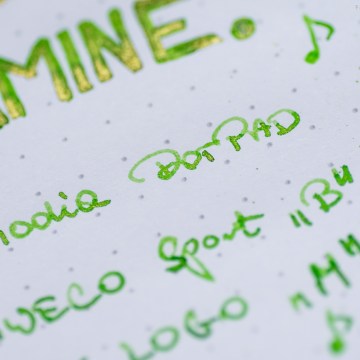 MINE.
hodia DOTPAD
WECO Sport "B"
LOGO "M"